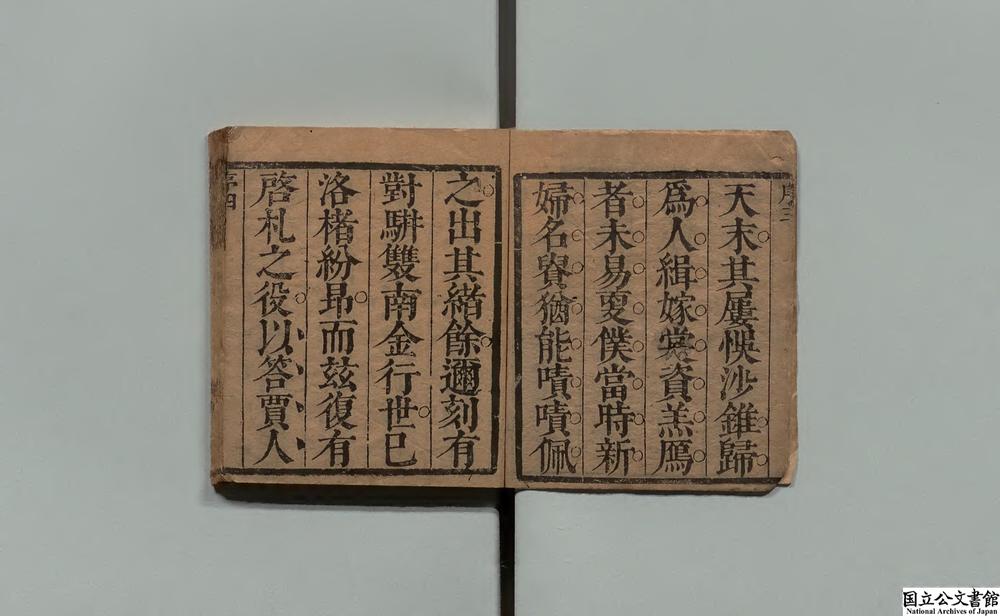 序三
天末其屢悞沙錐歸
爲人緝嫁裳資羔鴈
者未易更僕當時新
婦名譽猶能嘖嘖佩
之出其緒餘邇刻有
對騈雙南金行世已
洛楮紛昻而玆復有
啓札之役以答賈人
序四
国立公文書館
National Archives of Japan